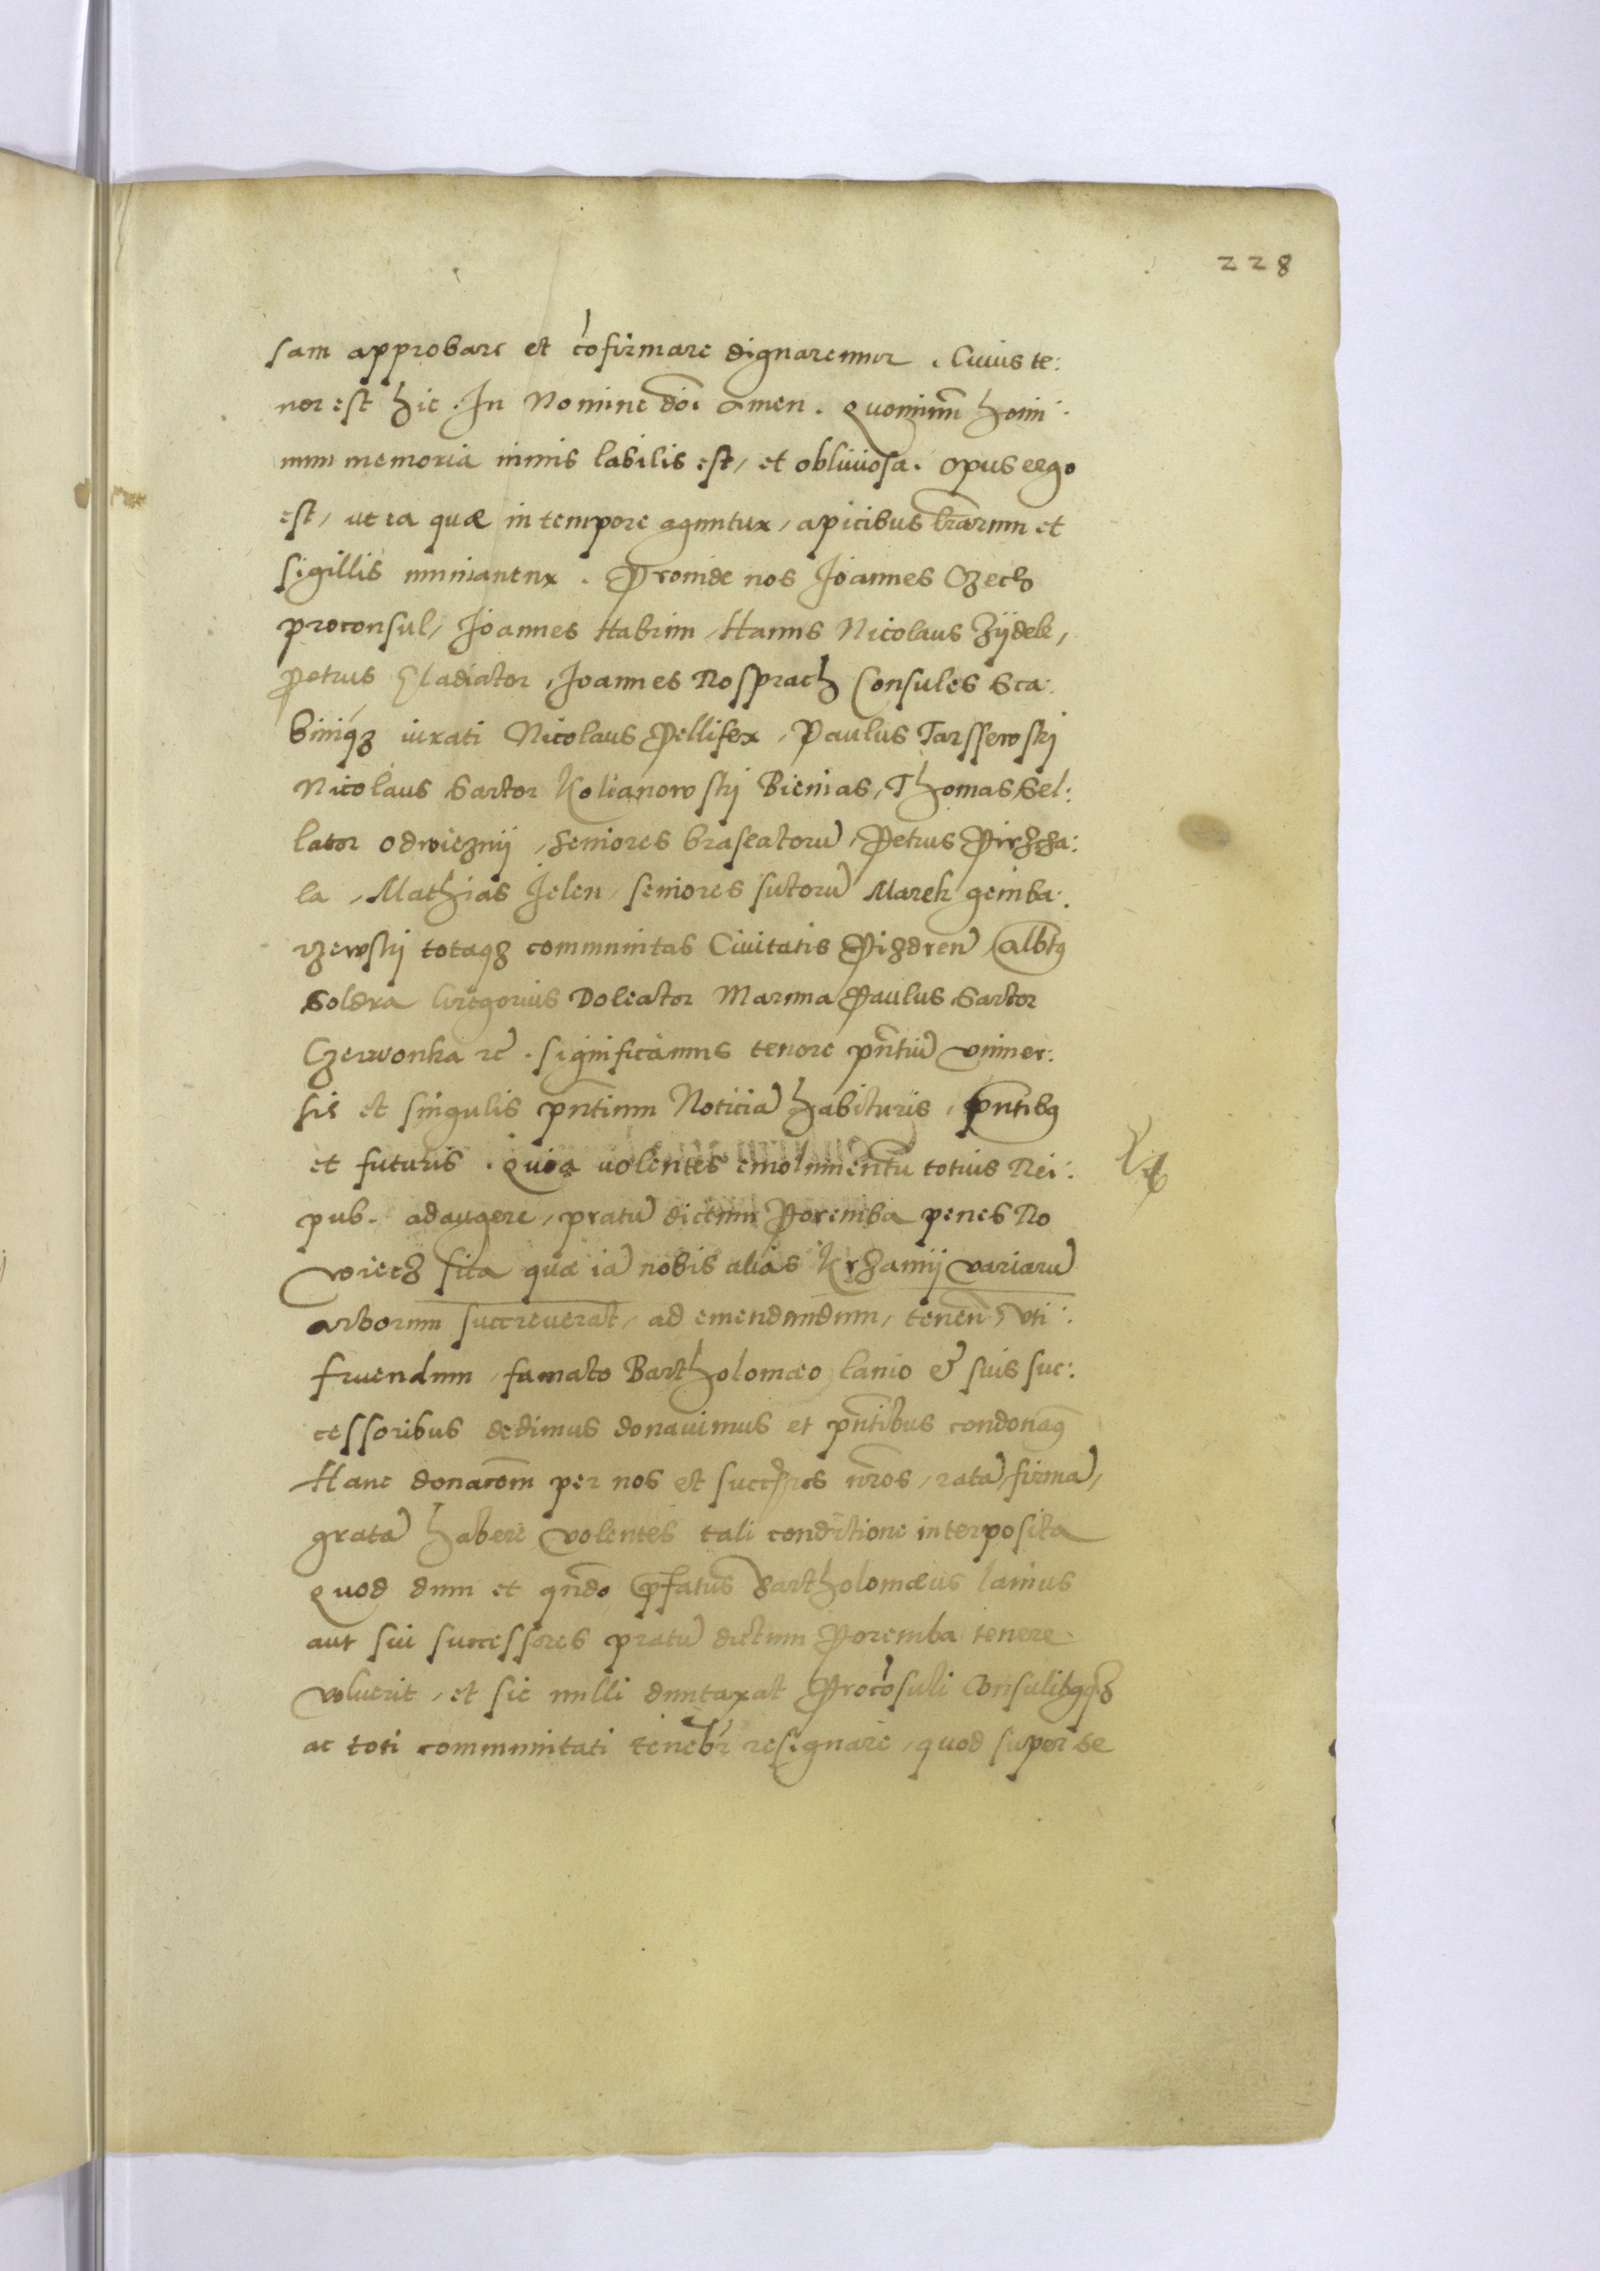 228
sam approbare et cōfirmare dignaremur. Cuius te:
nor est hic. In Nomine dōi amen. Quoniam homi:
num memoria nimis labilis est, et obliuiosa. Opus ergo
est, ut ea quæ in tempore aguntur, apicibus lr̄arum et
sigillis muniantur. Proinde nos Joannes Czech
proconsul, Joannes Habrun, Hanus Nicolaus Zijdek,
Petrus Gladiator, Joannes Rosprach Consules Sca:
biniq3 iurati Nicolaus Pellifex, Paulus Tarssewskj
Nicolaus Sartor Kolianowskj Bienias, Thomas Sel:
lator odwieznij, Seniores braseatorū, Petrus Pirzcha:
la, Mathias Jelen, seniores sutorū Marek gemba:
rzewskj totaq3 communitas Ciuitatis Pizdreñ Albt9
Soldra Gregorius Doleator Marma Paulus Sartor
Czerwonka rc̄. significamus tenore pn̄tiū vniuer:
sis et singulis pn̄tium Noticiā habituris, pn̄tib9
et futuris. Quia uolentes emolumentū totius Rei:
pub. adaugere, pratū dictum Poremba penes No
wiecz sita quæ iā nobis alias Krzamij variarū
arborum succreuerat, ad emendandum, teneñ, vti:
fruendum, famato Bartholomæo lanio & suis suc:
cessoribus dedimus donauimus et pn̄tibus condonam9
Hanc donacōm per nos et succ̄ores nr̄os, ratā, firmā,
gratā habere volentes tali conditione interposita
Quod dum et qn̄do p̄fatus Bartholomæus lanius
aut sui successores pratū dictum Poremba tenere
voluerit, et sic nulli duntaxat Procōsuli Consulibq3
ac toti communitati tenebr̄ resignare, quod super se